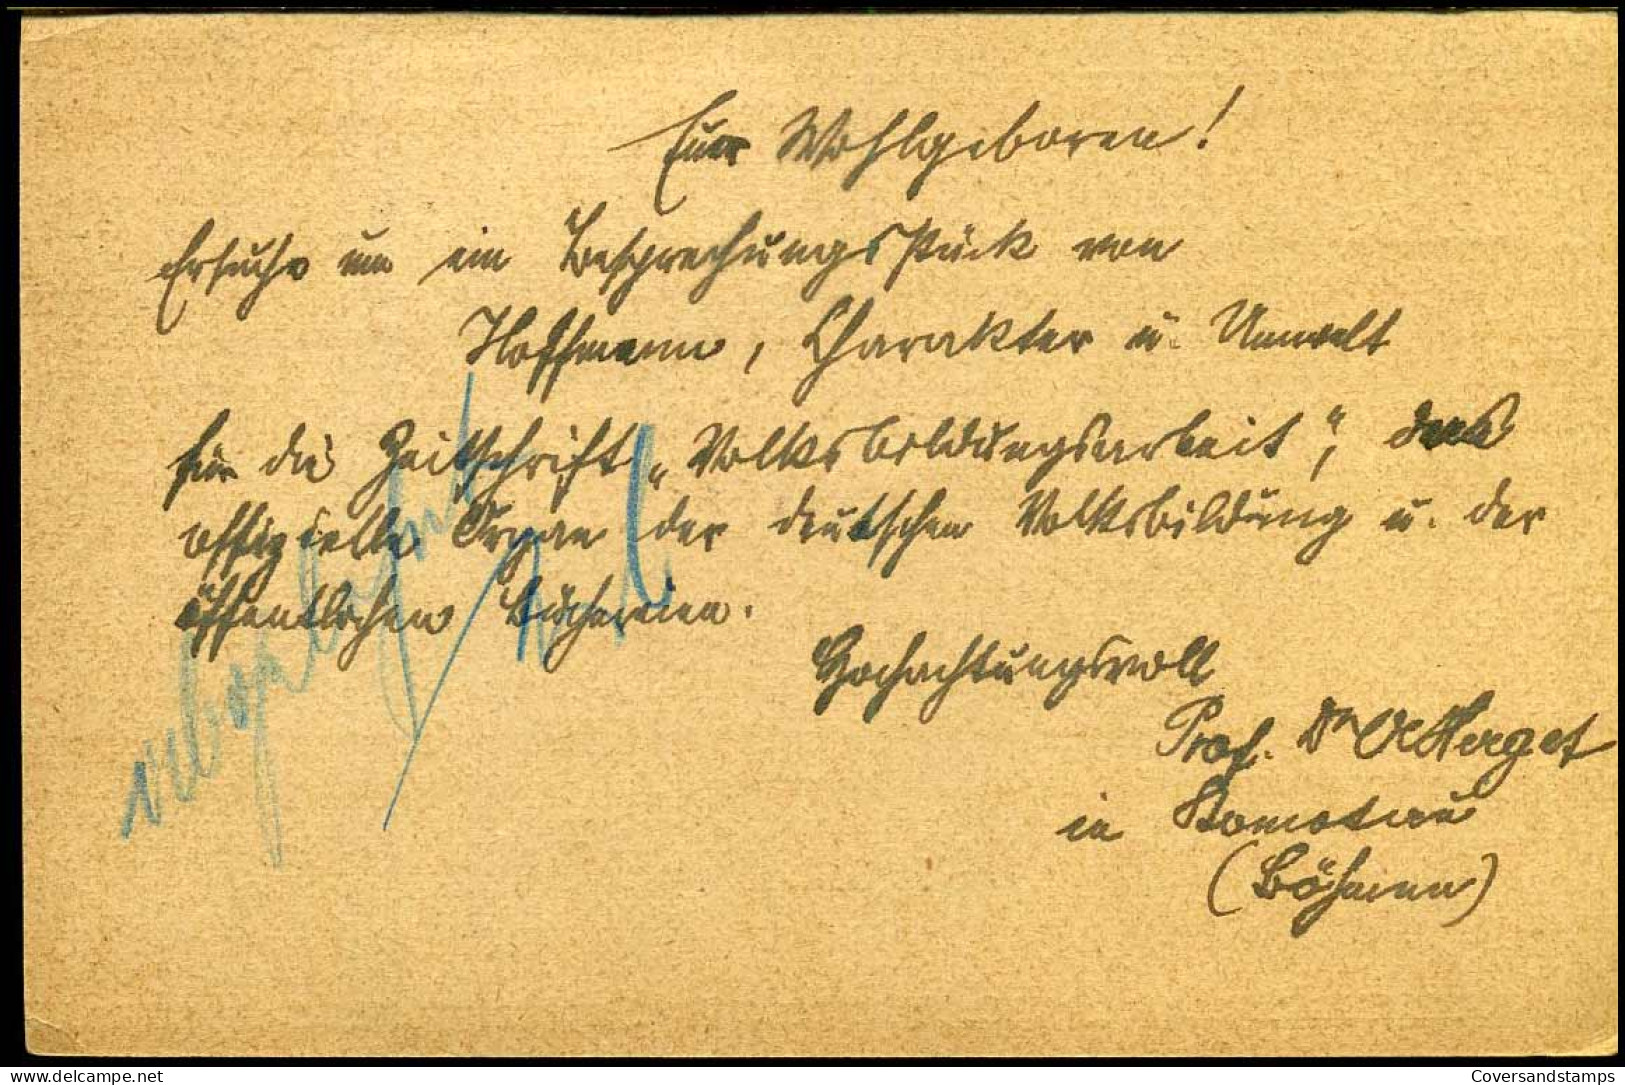 Euer Wohlgeboren!
Ersuche um ein Besprechungsstück von
Hoffmann, Charakter u. Umwelt
für die Zeitschrift „Volksbildungsarbeit“, das
offizielle Organ der deutschen Volksbildung u. der
öffentlichen Büchereien.
Hochachtungsvoll
Prof. Dr A Herget
in Komotau
(Böhmen)
Coversandstamps